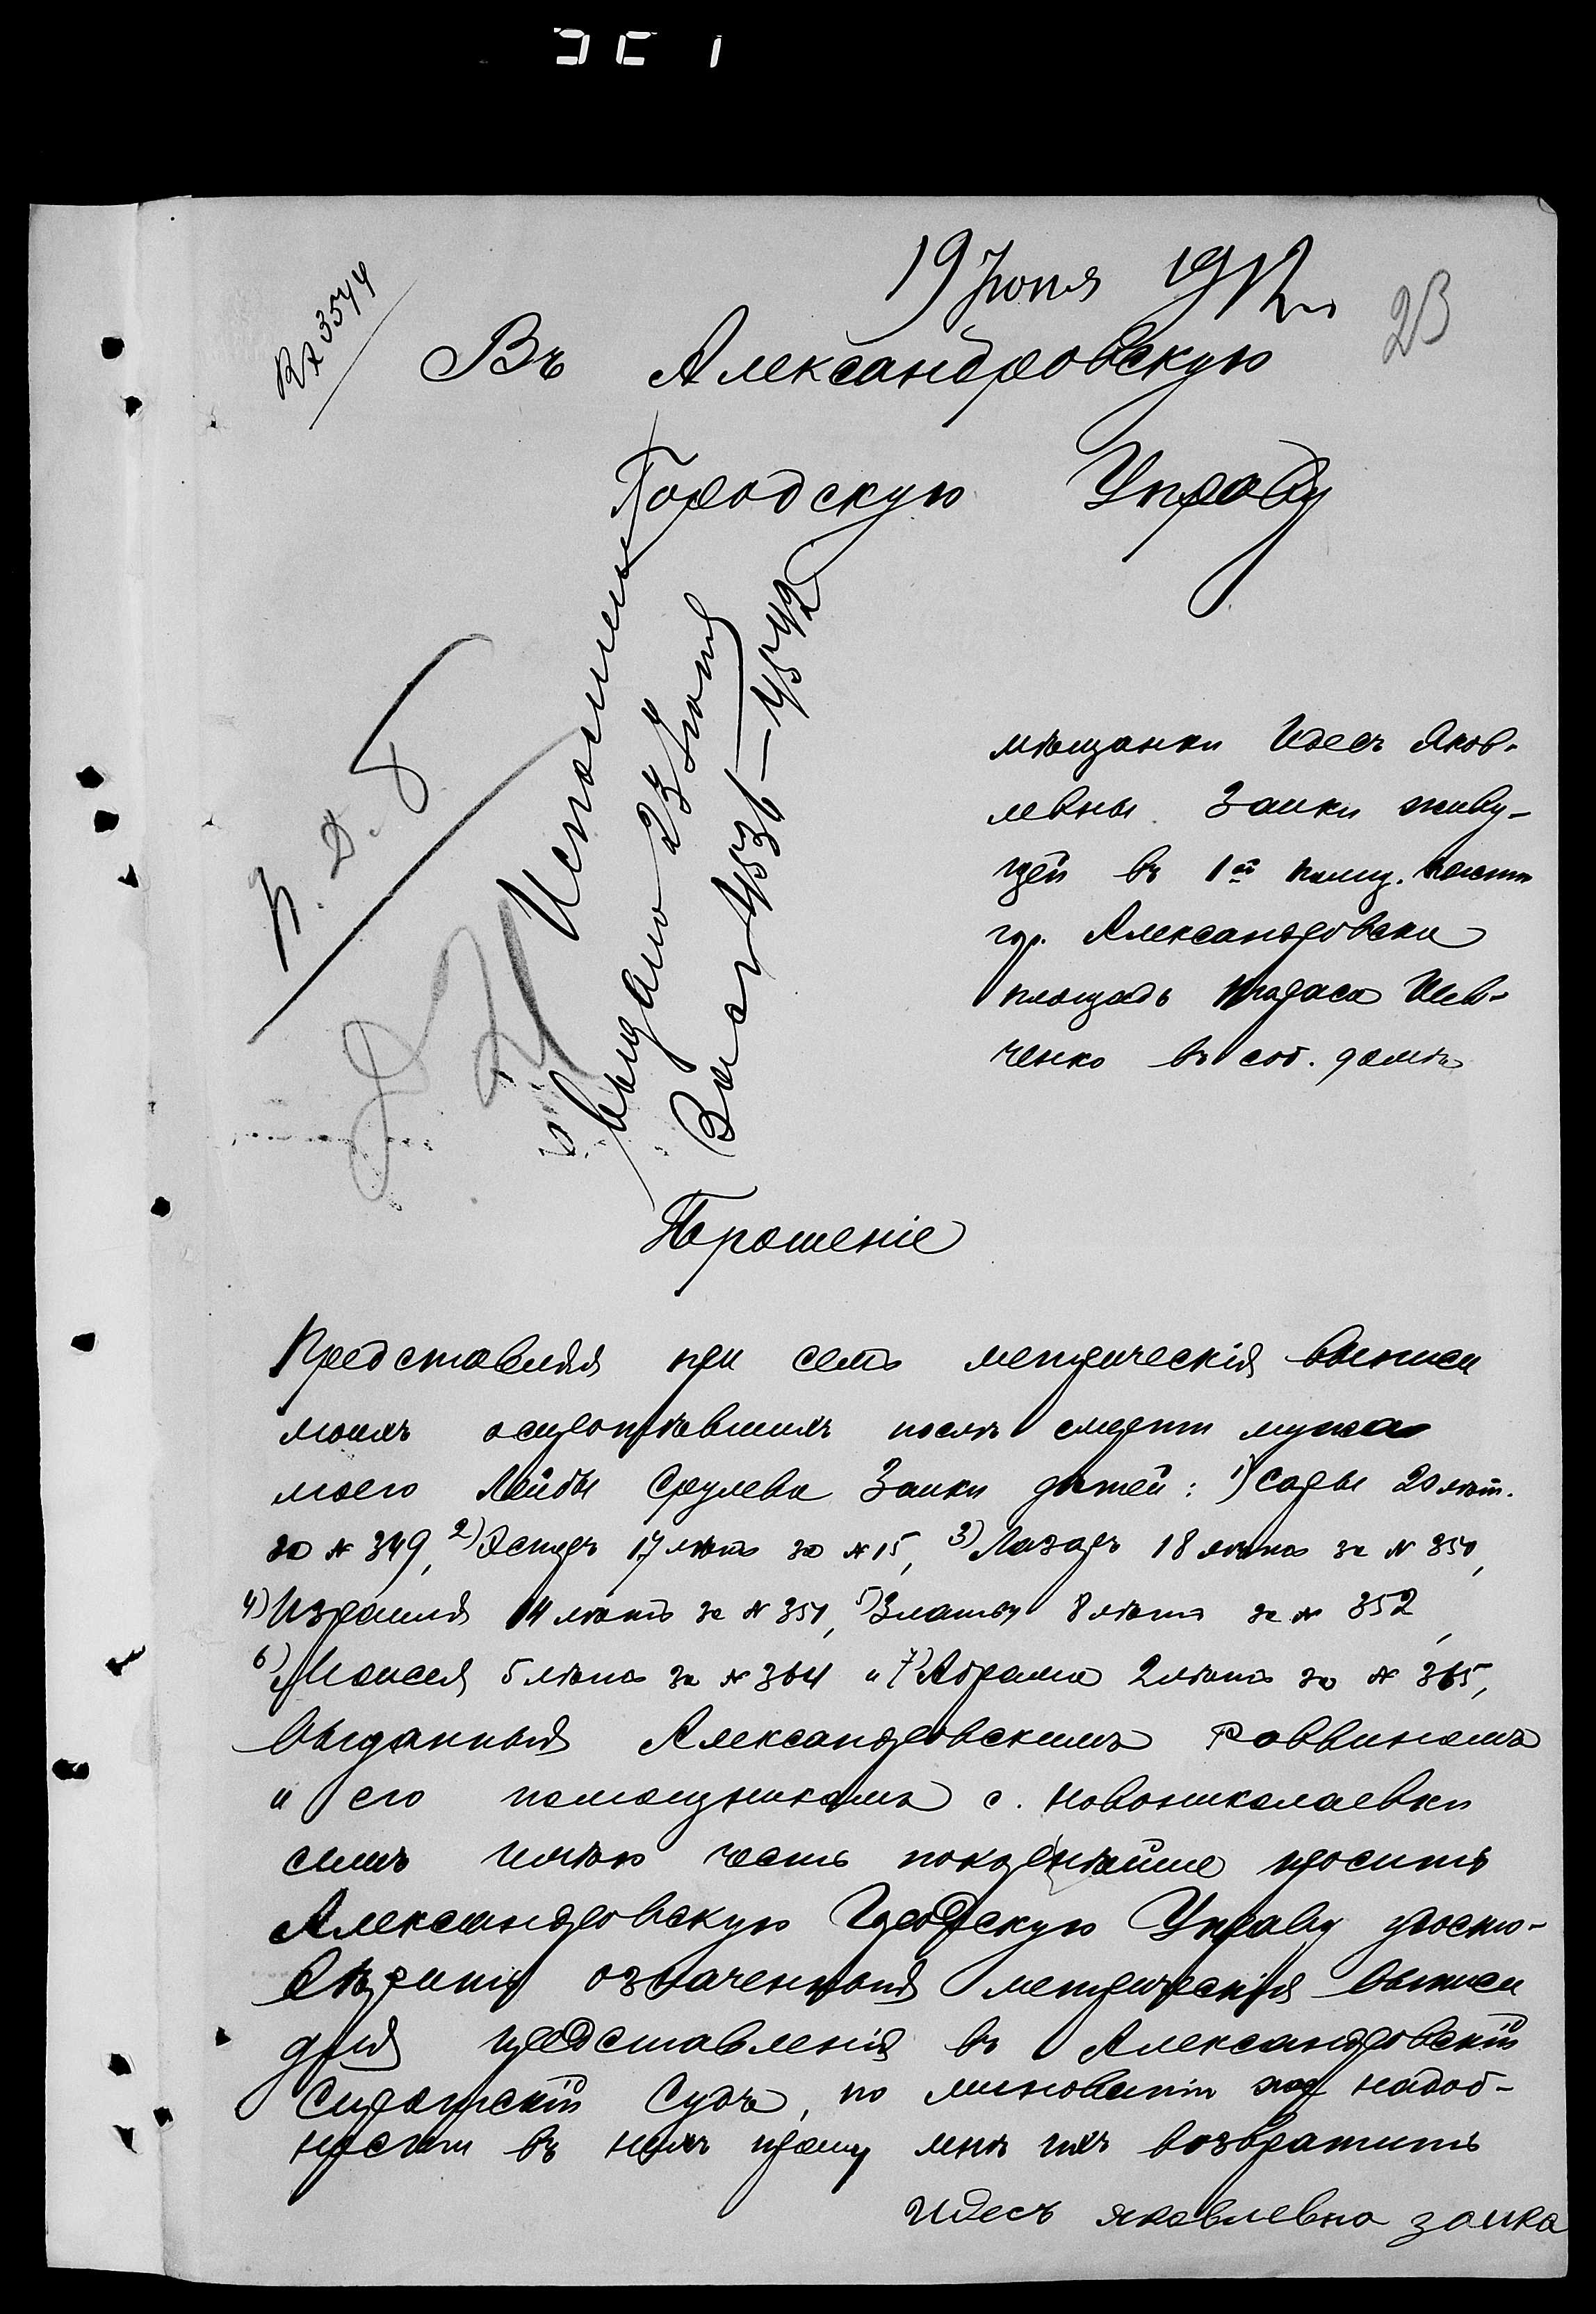 19 Іюня 1912 г.
23
Вх 3544
Въ Александровскую
Городскую Управу
Исполнено
выдано 23 Іюня
4536—4542
мѣщанки Идесъ Яков-
левны Заики живу-
щей въ 1й полиц. части
гор. Александровска
площадь Тараса Шев-
ченко въ соб. домѣ
Прошеніе
Представляя при семъ метрическія выписи
моихъ осиротѣвшихъ послѣ смерти мужа
моего Лейбы Срулева Заики дѣтей: 1) Сары 20 лѣт.
за № 349, 2) Эстеръ 17 лѣтъ за № 15, 3) Лазаръ 18 лѣтъ за № 350,
4) Израиля 14 лѣтъ за № 351, 5) Златы 8 лѣтъ за № 352,
6) Моисея 5 лѣтъ за № 364 и 7) Абрама 2 лѣтъ за № 365,
выданныя Александровскимъ Раввиномъ
и его помощникомъ с. Новониколаевки
симъ имѣю честь покорнѣйше просить
Александровскую Городскую Управу удосто-
вѣрить означенныя метрическія выписи
для представленія въ Александровскій
Сиротскій Судъ, по минованіи надоб-
ности въ нихъ прошу мнѣ ихъ возвратить
Идесъ яковлевна заика